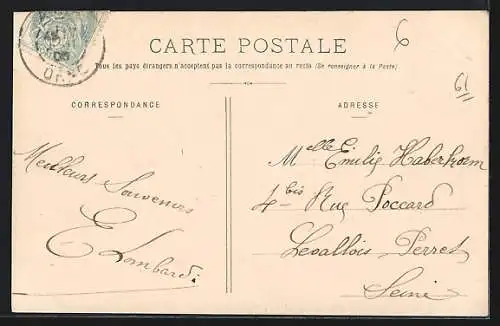 CARTE POSTALE
6
Tous les pays étrangers n'acceptent pas la correspondance au recto (Se renseigner à la Poste)
61
CORRESPONDANCE
Meilleurs Souvenirs
E Lombardi
ADRESSE
Melle Emilie Haberkorn
4 bis Rue Poccard
Levallois Perret
Seine
ORNE